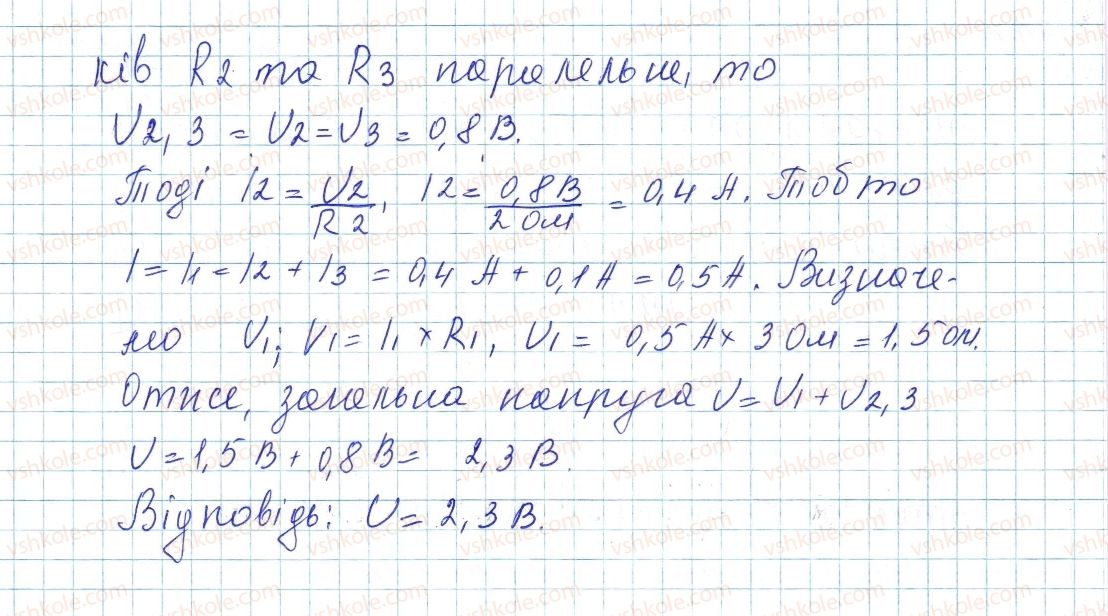 ків R2 та R3 паралельне, то
U2,3 = U2 = U3 = 0,8 В.
Тоді I2 = U2/R2, I2 = 0,8 В/2 Ом = 0,4 А. Тобто
I = I1 = I2 + I3 = 0,4 А + 0,1 А = 0,5 А. Визначе-
мо U1; U1 = I1 × R1, U1 = 0,5 А × 3 Ом = 1,5 ом.
Отже, загальна напруга U = U1 + U2,3
U = 1,5 В + 0,8 В = 2,3 В.
Відповідь: U = 2,3 В.